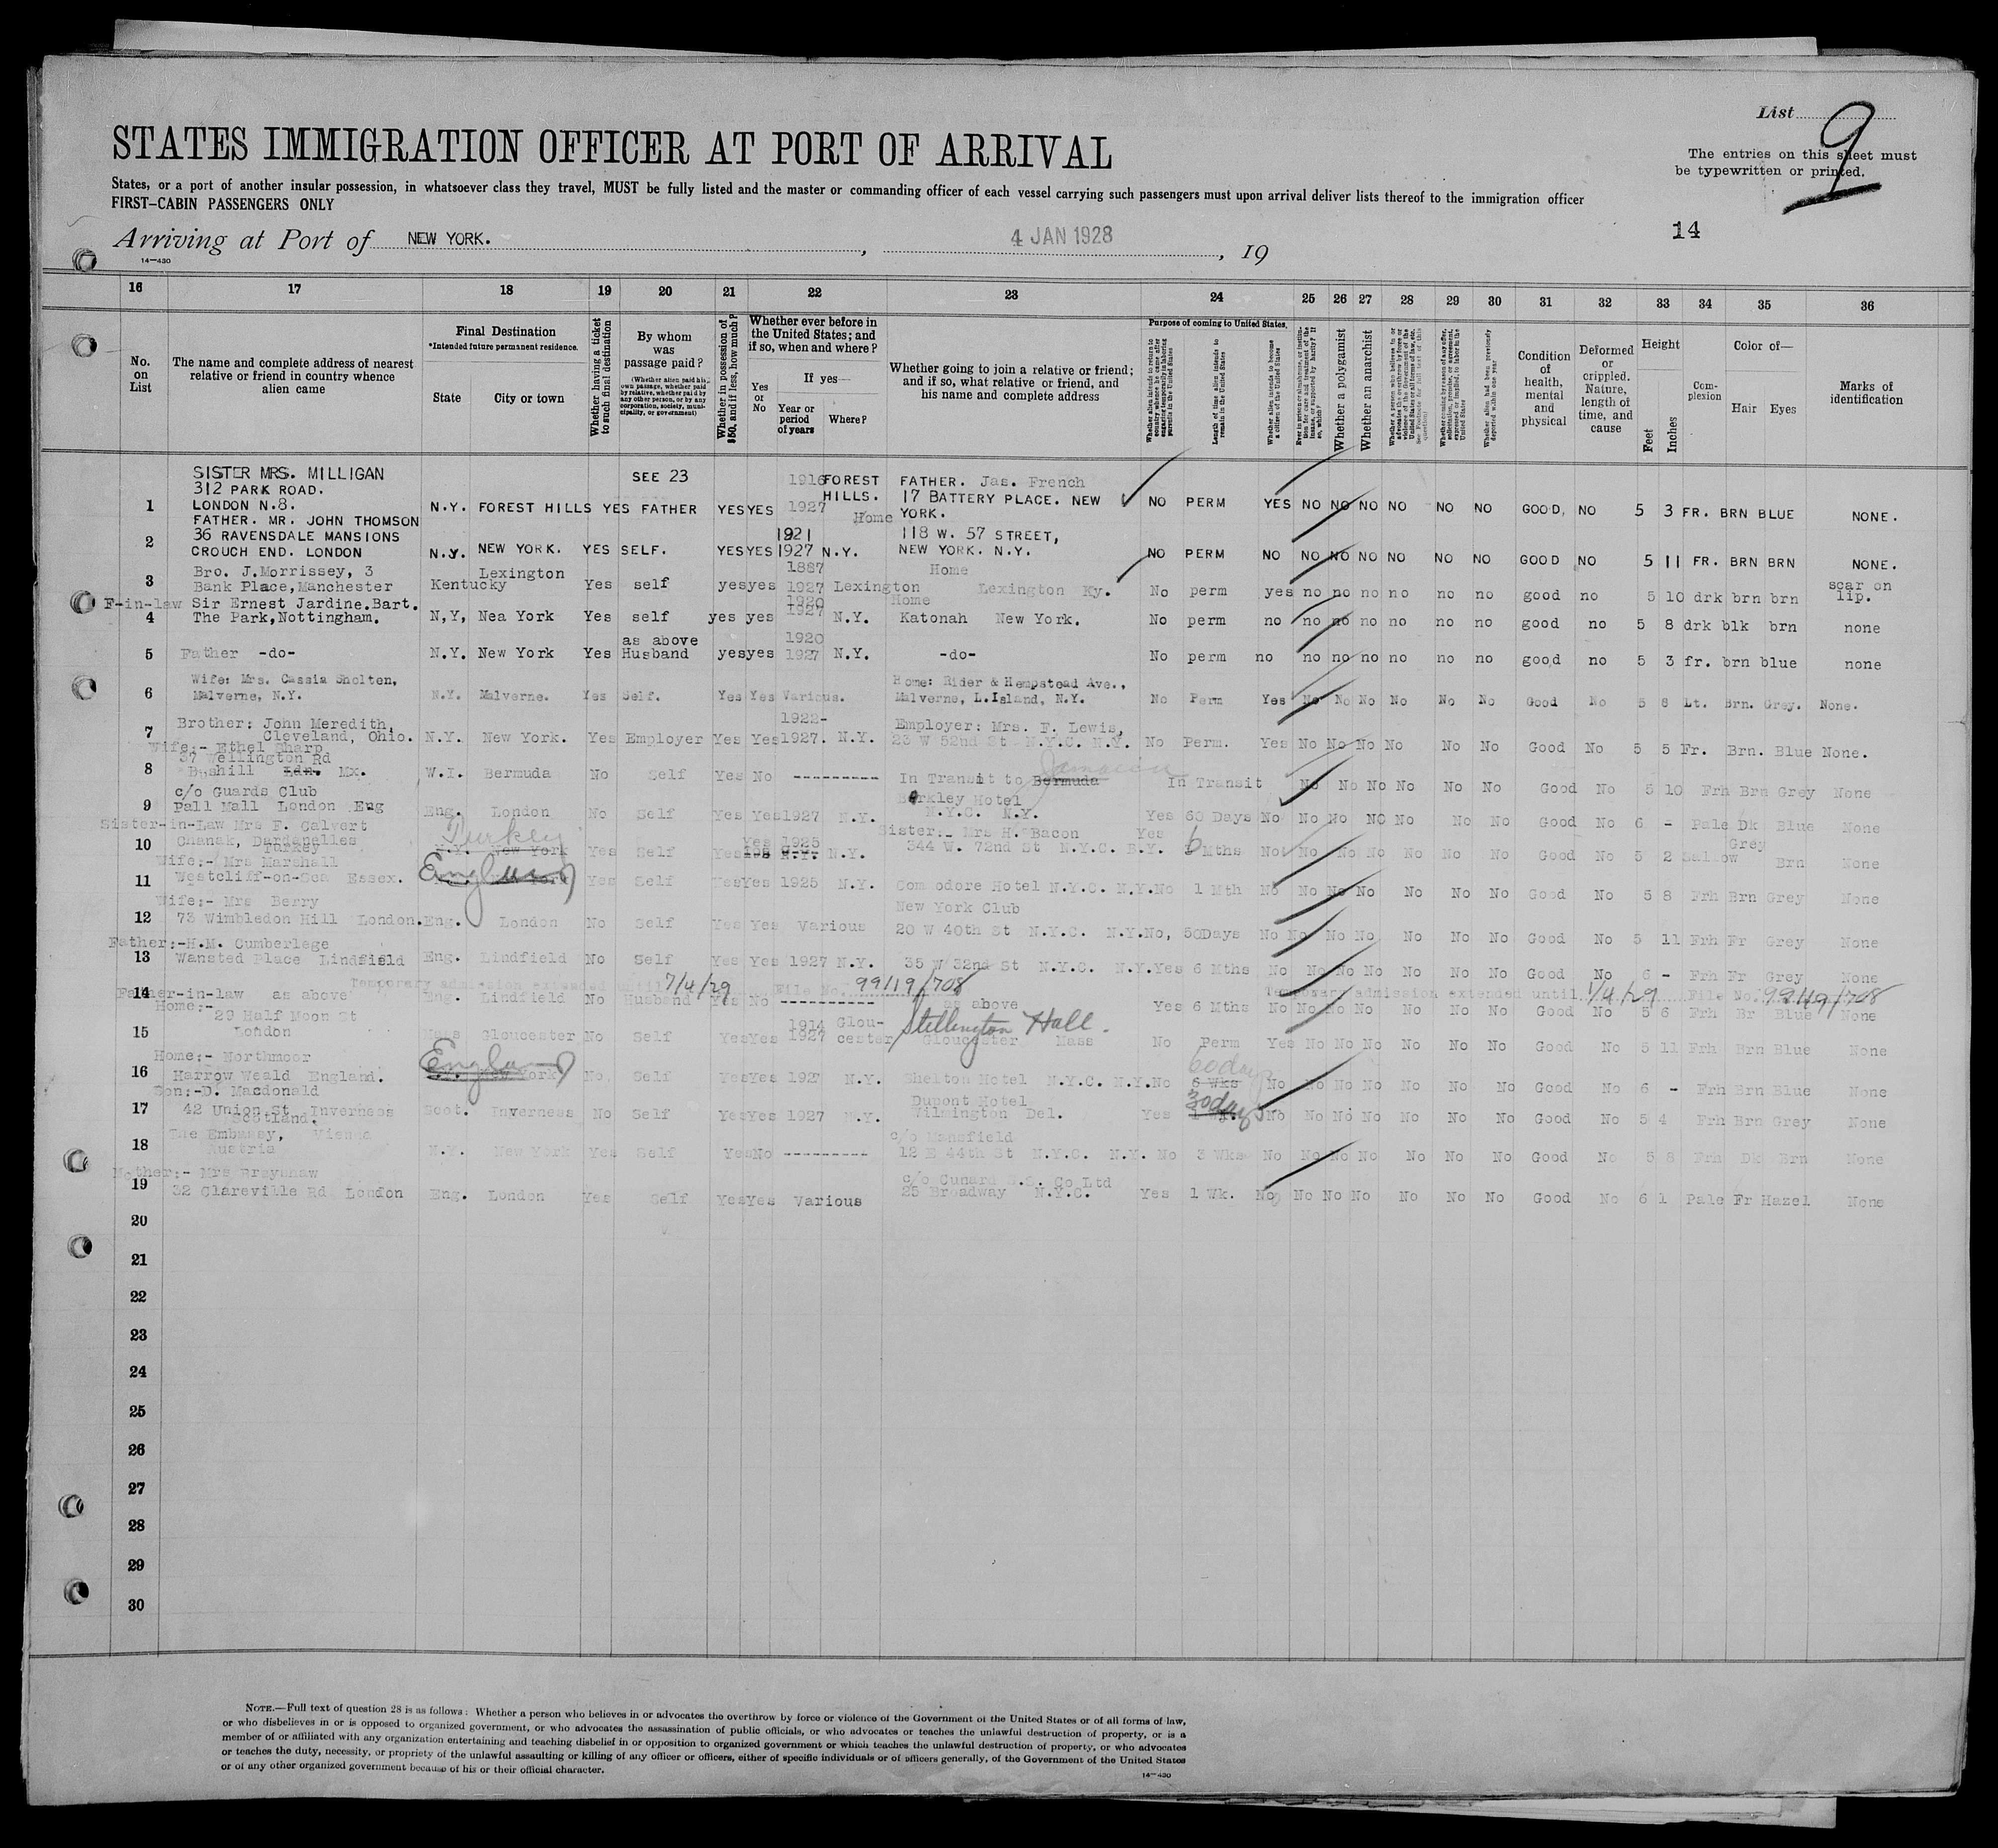 List 9
STATES IMMIGRATION OFFICER AT PORT OF ARRIVAL
The entries on this sheet must
be typewritten or printed.
States, or a port of another insular possession, in whatsoever class they travel, MUST be fully listed and the master or commanding officer of each vessel carrying such passengers must upon arrival deliver lists thereof to the immigration officer
FIRST-CABIN PASSENGERS ONLY
14
Arriving at Port of NEW YORK. , 4 JAN 1928 , 19
14-430
16 17 18 19 20 21 22 23 24 25 26 27 28 29 30 31 32 33 34 35 36
No. on List
The name and complete address of nearest relative or friend in country whence alien came
Final Destination
*Intended future permanent residence.
State City or town
Whether having a ticket to such final destination
By whom was passage paid?
(Whether alien paid his own passage, whether paid by relative, whether paid by any other person, or by any corporation, society, municipality, or government)
Whether in possession of $50, and if less, how much?
Whether ever before in the United States; and if so, when and where?
Yes or No
If yes—
Year or period of years Where?
Whether going to join a relative or friend; and if so, what relative or friend, and his name and complete address
Purpose of coming to United States.
Length of time alien intends to remain in the United States
Whether alien intends to become a citizen of the United States
Whether a polygamist
Whether an anarchist
Condition of health, mental and physical
Deformed or crippled. Nature, length of time, and cause
Height
Feet Inches
Complexion
Color of—
Hair Eyes
Marks of identification
SISTER MRS. MILLIGAN SEE 23 1916 FOREST FATHER. Jas. French
312 PARK ROAD. HILLS. 17 BATTERY PLACE. NEW
1 LONDON N.8. N.Y. FOREST HILLS YES FATHER YES YES 1927 Home YORK. NO PERM YES NO NO NO NO NO NO GOOD, NO 5 3 FR. BRN BLUE NONE.
FATHER. MR. JOHN THOMSON
2 36 RAVENSDALE MANSIONS 1921 118 W. 57 STREET,
CROUCH END. LONDON N.Y. NEW YORK. YES SELF. YES YES 1927 N.Y. NEW YORK. N.Y. NO PERM NO NO NO NO NO NO NO GOOD NO 5 11 FR. BRN BRN NONE.
Bro. J.Morrissey, 3 Lexington 1887 Home
3 Bank Place, Manchester Kentucky Yes self yes yes 1927 Lexington Lexington Ky. No perm yes no no no no no no good no 5 10 drk brn brn scar on lip.
F-in-law Sir Ernest Jardine.Bart. 1920 Home
4 The Park, Nottingham. N,Y, Nea York Yes self yes yes 1927 N.Y. Katonah New York. No perm no no no no no no no good no 5 8 drk blk brn none
as above 1920
5 Father -do- N.Y. New York Yes Husband yes yes 1927 N.Y. -do- No perm no no no no no no no good no 5 3 fr. brn blue none
Wife: Mrs. Cassia Sholten, Home: Rider & Hempstead Ave.,
6 Malverne, N.Y. N.Y. Malverne. Yes Self. Yes Yes Various. Malverne, L.Island, N.Y. No Perm Yes No No No No No No Good No 5 8 Lt. Brn. Grey. None.
Brother: John Meredith, 1922- Employer: Mrs. F. Lewis,
7 Cleveland, Ohio. N.Y. New York. Yes Employer Yes Yes 1927. N.Y. 23 W 52nd St N.Y.C. N.Y. No Perm. Yes No No No No No No Good No 5 5 Fr. Brn. Blue None.
Wife:- Ethel Sharp
37 Wellington Rd Jamaica
8 Bushill Ldn. Mx. W.I. Bermuda No Self Yes No --------- In Transit to Bermuda In Transit No No No No No No Good No 5 10 Frh Brn Grey None
c/o Guards Club Berkley Hotel
9 Pall Mall London Eng Eng. London No Self Yes Yes 1927 N.Y. N.Y.C. N.Y. Yes 60 Days No No No No No No No Good No 6 - Pale Dk Blue None
Sister-in-Law Mrs F. Calvert Turkey Yes 1925 Sister:- Mrs H. Bacon Yes Grey
10 Chanak, Dardanelles N.Y. New York Yes Self Yes N.Y. 344 W. 72nd St N.Y.C. N.Y. 6 Mths No No No No No No No Good No 5 2 Sallow Brn None
Turkey
Wife:- Mrs Marshall England
11 Westcliff-on-Sea Essex. Yes Self Yes Yes 1925 N.Y. Commodore Hotel N.Y.C. N.Y. No 1 Mth No No No No No No No Good No 5 8 Frh Brn Grey None
Wife:- Mrs Berry New York Club
12 73 Wimbledon Hill London. Eng. London No Self Yes Yes Various 20 W 40th St N.Y.C. N.Y. No, 50Days No No No No No No No Good No 5 11 Frh Fr Grey None
Father:-H.M. Cumberlege
13 Wansted Place Lindfield Eng. Lindfield No Self Yes Yes 1927 N.Y. 35 W 32nd St N.Y.C. N.Y. Yes 6 Mths No No No No No No No Good No 6 - Frh Fr Grey None
Temporary admission extended until 7/4/29 File No. 99119/708 Temporary admission extended until 1/4/29 File No. 99119/708
14 Father-in-law as above Eng. Lindfield No Husband Yes No --------- as above Yes 6 Mths No No No No No No No Good No 5 6 Frh Br Blue None
Home:-
29 Half Moon St 1914 Glou- Stillington Hall.
15 London Mass Gloucester No Self Yes Yes 1927 cester Gloucester Mass No Perm Yes No No No No No No Good No 5 11 Frh Brn Blue None
Home:- Northmoor England 60 days
16 Harrow Weald England. New York No Self Yes Yes 1927 N.Y. Shelton Hotel N.Y.C. N.Y. No 6 Wks No No No No No No No Good No 6 - Frh Brn Blue None
Son:-D. Macdonald Dupont Hotel 30 days
17 42 Union St Inverness Scot. Inverness No Self Yes Yes 1927 N.Y. Wilmington Del. Yes No No No No No No No Good No 5 4 Frh Brn Grey None
Scotland.
The Embassy, Vienna c/o Mansfield
18 Austria N.Y. New York Yes Self Yes No --------- 12 E 44th St N.Y.C. N.Y. No 3 Wks No No No No No No No Good No 5 8 Frh Dk Brn None
Mother:- Mrs Brayshaw c/o Cunard S.S. Co Ltd
19 32 Clareville Rd London Eng. London Yes Self Yes Yes Various 25 Broadway N.Y.C. Yes 1 Wk. No No No No No No No Good No 6 1 Pale Fr Hazel None
20
21
22
23
24
25
26
27
28
29
30
NOTE.—Full text of question 28 is as follows: Whether a person who believes in or advocates the overthrow by force or violence of the Government of the United States or of all forms of law,
or who disbelieves in or is opposed to organized government, or who advocates the assassination of public officials, or who advocates or teaches the unlawful destruction of property, or is a
member of or affiliated with any organization entertaining and teaching disbelief in or opposition to organized government or which teaches the unlawful destruction of property, or who advocates
or teaches the duty, necessity, or propriety of the unlawful assaulting or killing of any officer or officers, either of specific individuals or of officers generally, of the Government of the United States
or of any other organized government because of his or their official character.
14-430